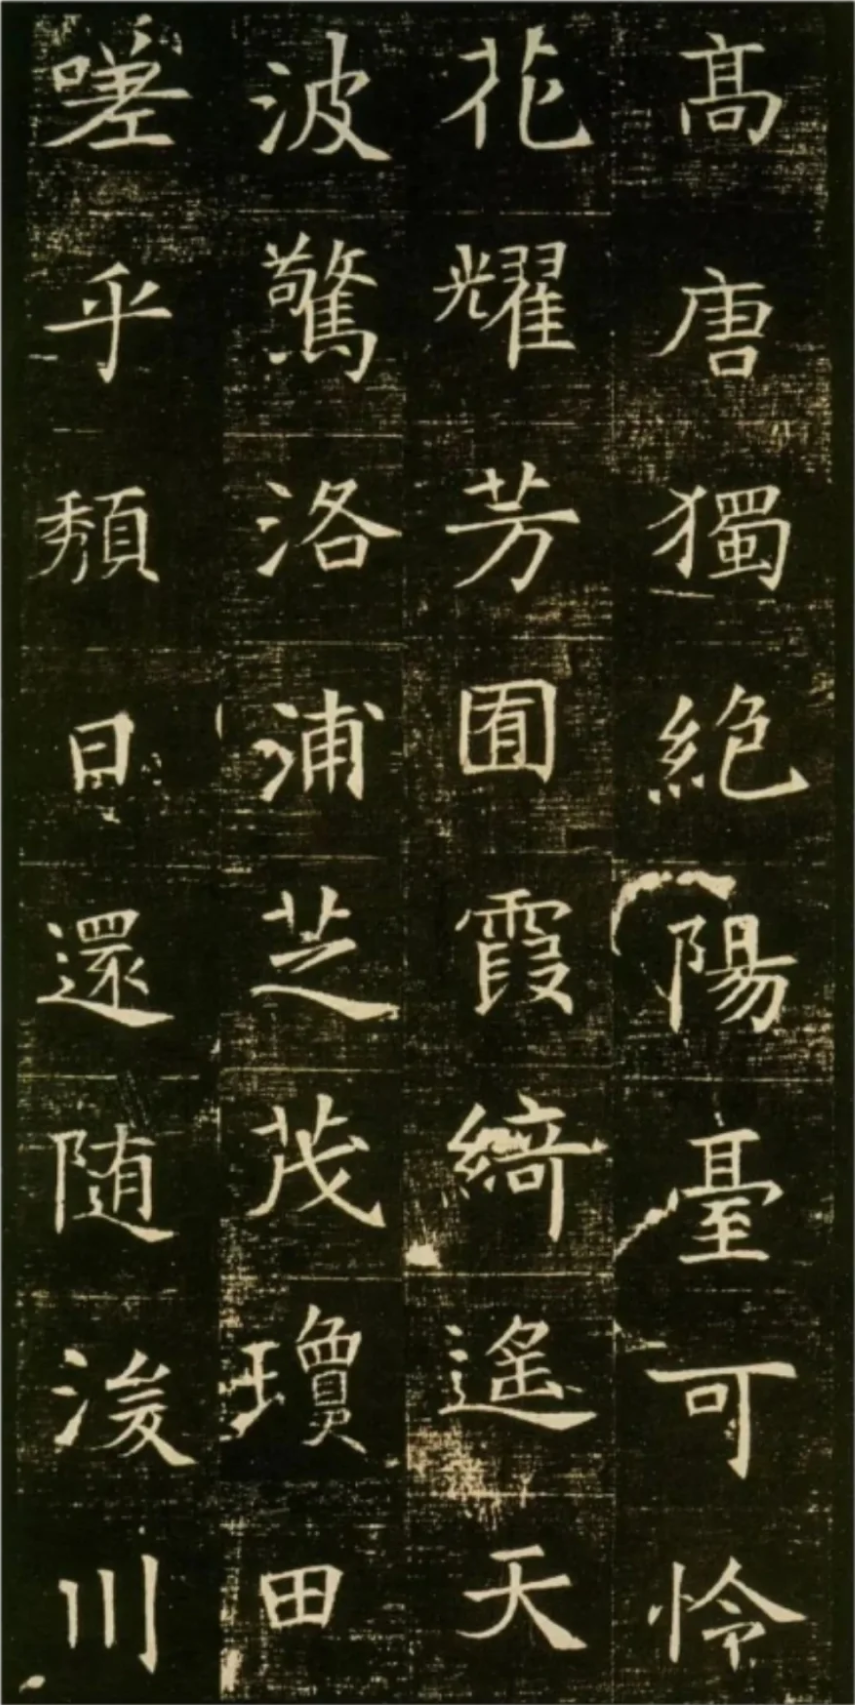 高唐獨絶陽臺可怜
花耀芳囿霞綺遥天
波驚洛浦芝茂瓊田
嗟乎頽日還随浚川